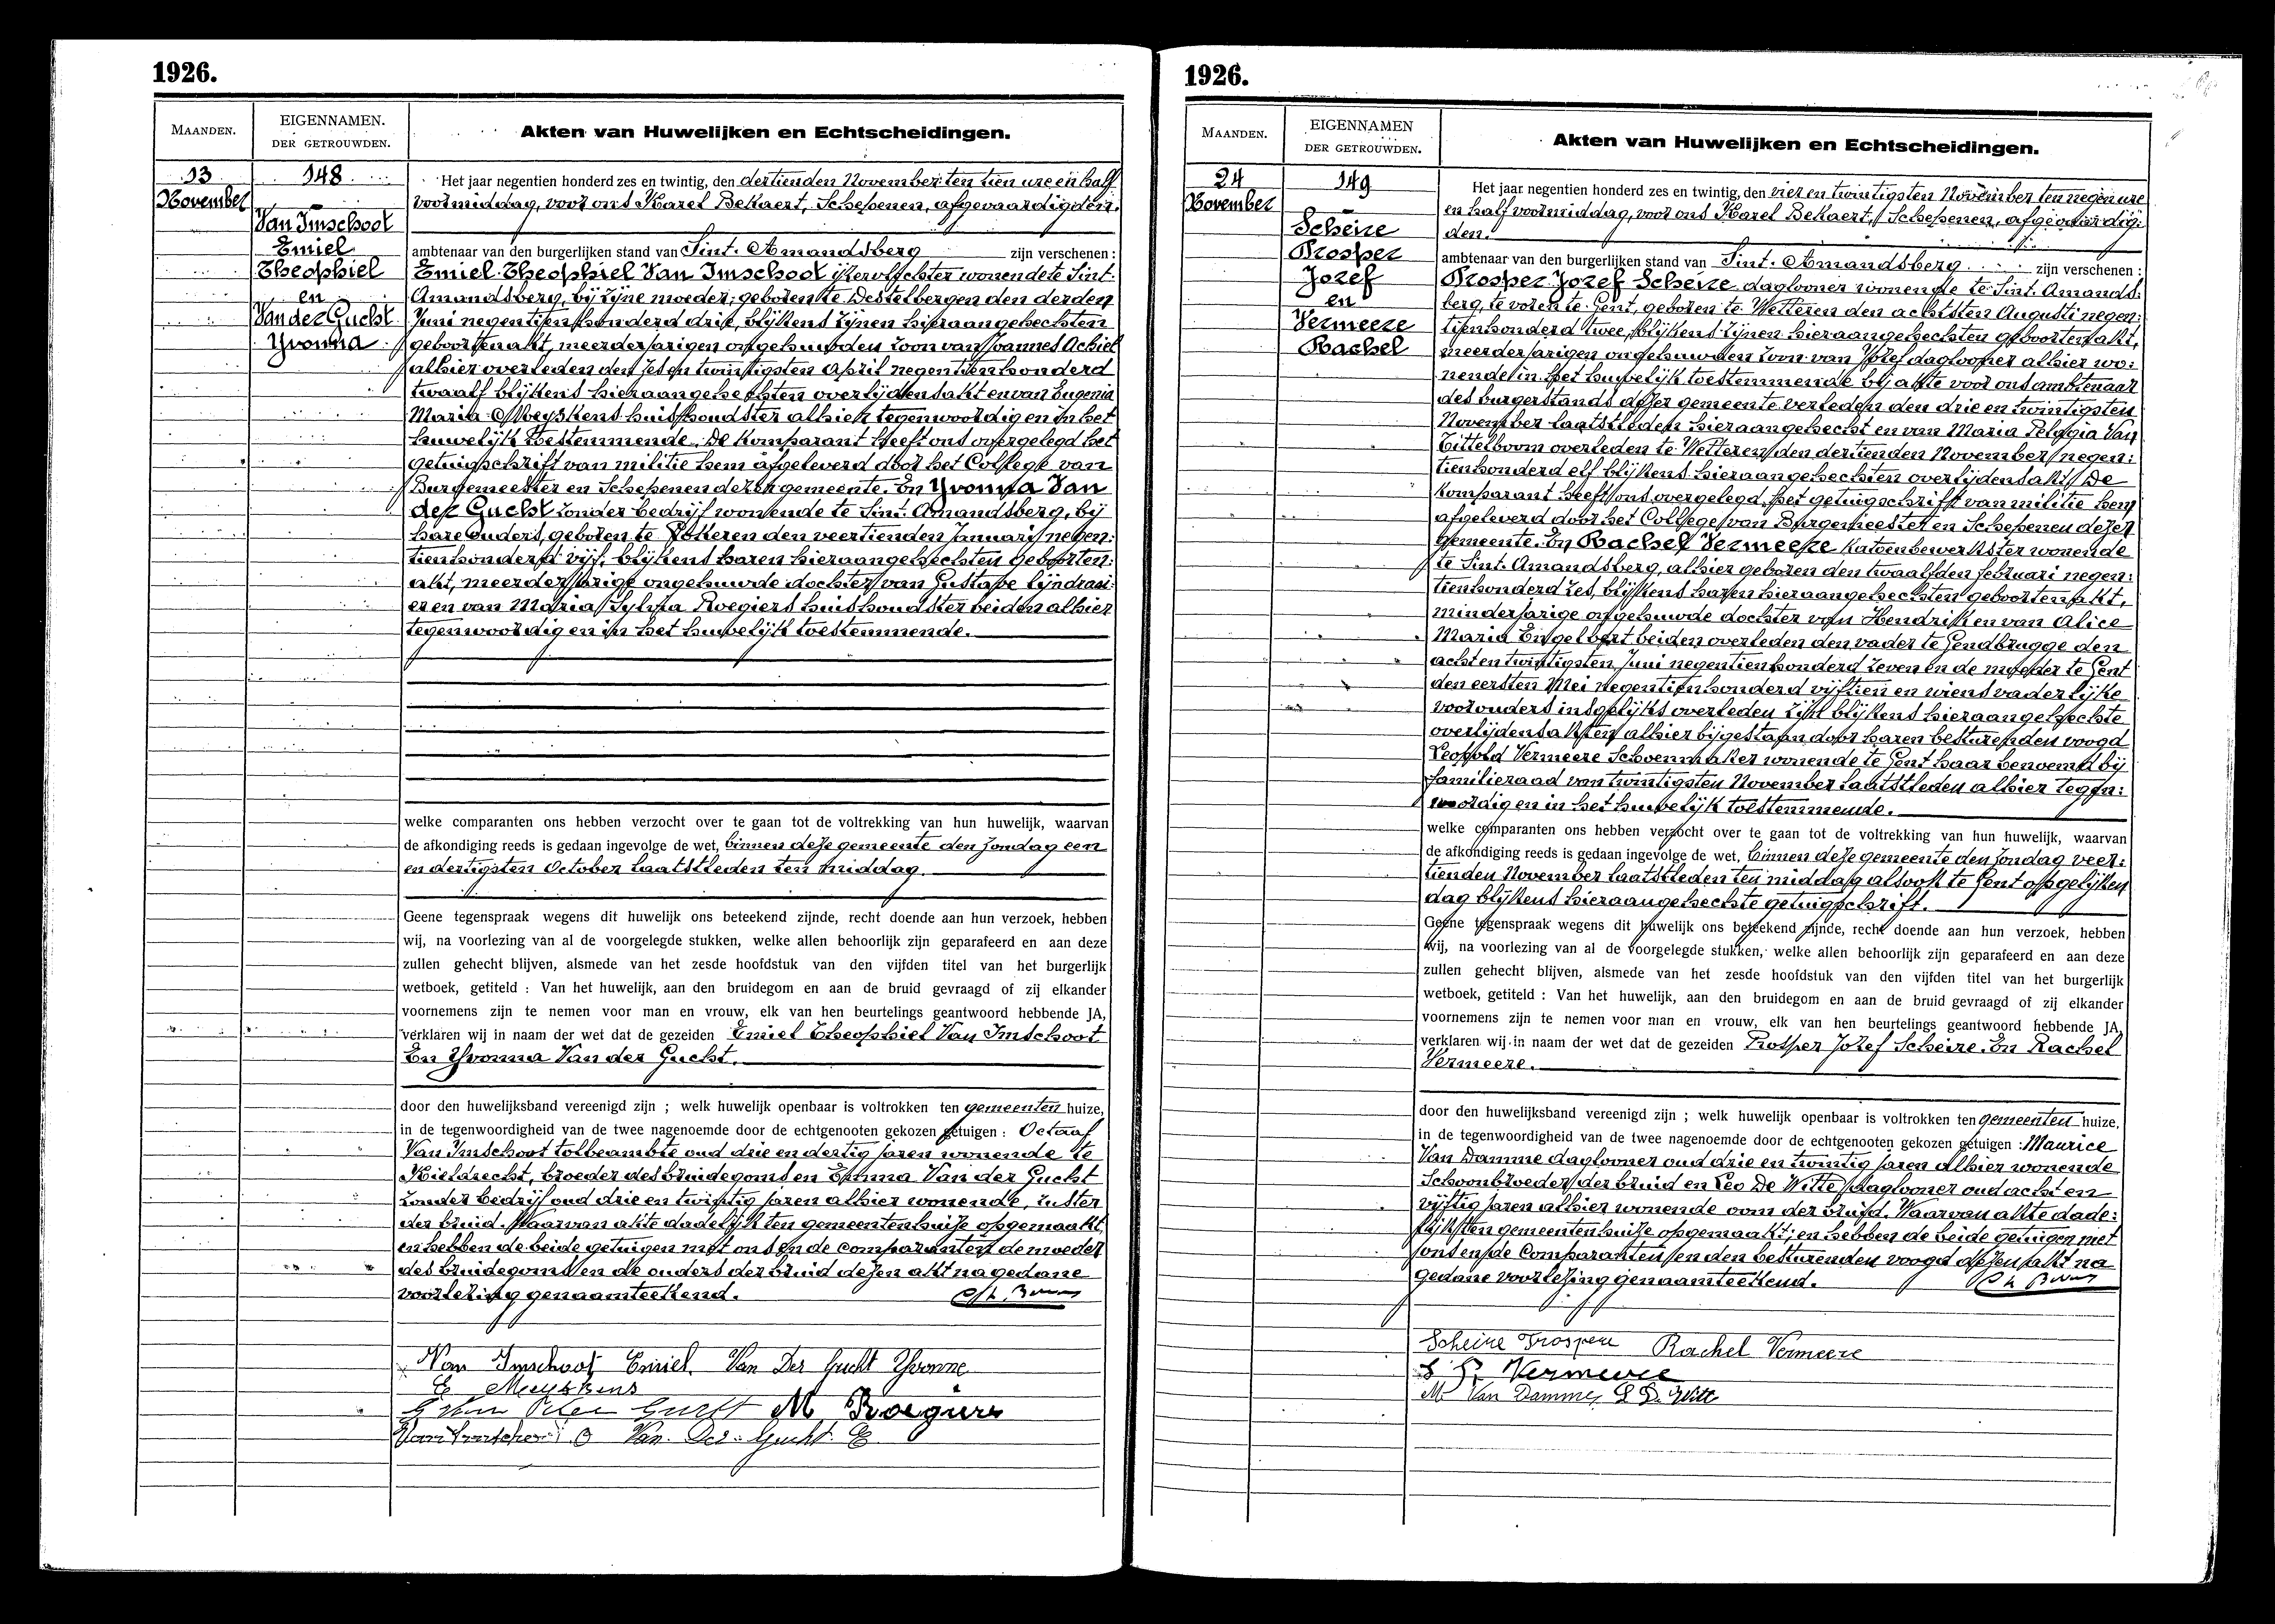 1926.
MAANDEN.
EIGENNAMEN.
DER GETROUWDEN.
Akten van Huwelijken en Echtscheidingen.
13
November
148
Van Imschoot
Emiel
Theophiel
en
Van der Gucht
Yvonna
Het jaar negentien honderd zes en twintig, den dertienden November ten tien ure en half
voormiddag, voor ons Karel Bekaert, Schepenen, afgevaardigden
ambtenaar van den burgerlijken stand van Sint-Amandsberg zijn verschenen :
Emiel Theophiel Van Imschoot wonende te Sint-
Amandsberg, bij zijne moeder, geboren te Destelbergen den derden
Juni negentienhonderd drie, blijkens zijnen hieraangehechten
geboortenakt, meerderjarigen ongehuwden zoon van Joannes Achiel
alhier overleden den zes en twintigsten April negentienhonderd
twaalf blijkens hieraangehechten overlijdensakt en van Eugenia
Maria Meyskens huishoudster alhier tegenwoordig en in het
huwelijk toestemmende. De komparant heeft ons overgelegd het
getuigschrift van militie hem afgeleverd door het College van
Burgemeester en Schepenen dezer gemeente. En Yvonna Van
der Gucht zonder bedrijf wonende te Sint-Amandsberg, bij
hare ouders, geboren te Lokeren den veertienden Januari negen:
tienhonderd vijf, blijkens haren hieraangehechten geboorten:
akt, meerderjarige ongehuwde dochter van Gustave lijndraai:
er en van Maria Sylvia Roegiers huishoudster beiden alhier
tegenwoordig en in het huwelijk toestemmende.
welke comparanten ons hebben verzocht over te gaan tot de voltrekking van hun huwelijk, waarvan
de afkondiging reeds is gedaan ingevolge de wet, binnen deze gemeente den Zondag een
en dertigsten October laatstleden ten middag.
Geene tegenspraak wegens dit huwelijk ons beteekend zijnde, recht doende aan hun verzoek, hebben
wij, na voorlezing van al de voorgelegde stukken, welke allen behoorlijk zijn geparafeerd en aan deze
zullen gehecht blijven, alsmede van het zesde hoofdstuk van den vijfden titel van het burgerlijk
wetboek, getiteld : Van het huwelijk, aan den bruidegom en aan de bruid gevraagd of zij elkander
voornemens zijn te nemen voor man en vrouw, elk van hen beurtelings geantwoord hebbende JA,
verklaren wij in naam der wet dat de gezeiden Emiel Theophiel Van Imschoot
En Yvonna Van der Gucht.
door den huwelijksband vereenigd zijn ; welk huwelijk openbaar is voltrokken ten gemeenten huize,
in de tegenwoordigheid van de twee nagenoemde door de echtgenooten gekozen getuigen : Octaaf
Van Imschoot tolbeambte oud drie en dertig jaren wonende te
Kieldrecht, broeder des bruidegoms en Emma Van der Gucht
zonder bedrijf oud drie en twintig jaren alhier wonende, zuster
der bruid. Waarvan akte dadelijk ten gemeentenhuize opgemaakt
en hebben de beide getuigen met ons en de comparanten de moeder
des bruidegoms en de ouders der bruid dezen akt na gedane
voorlezing genaamteekend.
Van Imschoot Emiel. Van Der Gucht Yvonne
E Meyskens
M Roegiers
Van Imschoot O Van Der Gucht E
1926.
MAANDEN.
EIGENNAMEN
DER GETROUWDEN.
Akten van Huwelijken en Echtscheidingen.
24
November
149
Scheire
Prosper
Jozef
en
Vermeere
Rachel
Het jaar negentien honderd zes en twintig, den vier en twintigsten November ten negen ure
en half voormiddag, voor ons Karel Bekaert, Schepenen, afgevaardig:
den.
ambtenaar van den burgerlijken stand van Sint-Amandsberg zijn verschenen :
Prosper Jozef Scheire daglooner wonende te Sint-Amands:
berg, te voren te Gent, geboren te Wetteren den achtsten Augusti negen:
tienhonderd twee, blijkens zijnen hieraangehechten geboortenakt,
meerderjarigen ongehuwden zoon van Jozef daglooner alhier wo:
nende in het huwelijk toestemmende bij akte voor ons ambtenaar
des burgerstands dezer gemeente verleden den drie en twintigsten
November laatstleden hieraangehecht en van Maria Pelagia Van
Tittelboom overleden te Wetteren den dertienden November negen:
tienhonderd elf blijkens hieraangehechten overlijdensakt. De
komparant heeft ons overgelegd het getuigschrift van militie hem
afgeleverd door het College van Burgemeester en Schepenen dezer
gemeente. En Rachel Vermeere katoenbewerkster wonende
te Sint-Amandsberg, alhier geboren den twaalfden februari negen:
tienhonderd zes, blijkens haren hieraangehechten geboortenakt,
minderjarige ongehuwde dochter van Hendrik en van Alice
Maria Engelbert beiden overleden den vader te Gendbrugge den
acht en twintigsten Juni negentienhonderd zeven en de moeder te Gent
den eersten Mei negentienhonderd vijftien en wiens vaderlijke
voorouders insgelijks overleden zijn blijkens hieraangehechte
overlijdensakten alhier bijgestaan door haren besturenden voogd
Leopold Vermeere Schoenmaker wonende te Gent haar benoemd bij
familieraad van twintigsten November laatstleden alhier tegen:
woordig en in het huwelijk toestemmende.
welke comparanten ons hebben verzocht over te gaan tot de voltrekking van hun huwelijk, waarvan
de afkondiging reeds is gedaan ingevolge de wet, binnen deze gemeente den Zondag veer:
tienden November laatstleden ten middag alsook te Gent op gelijken
dag blijkens hieraangehechte getuigschrift.
Geene tegenspraak wegens dit huwelijk ons beteekend zijnde, recht doende aan hun verzoek, hebben
wij, na voorlezing van al de voorgelegde stukken, welke allen behoorlijk zijn geparafeerd en aan deze
zullen gehecht blijven, alsmede van het zesde hoofdstuk van den vijfden titel van het burgerlijk
wetboek, getiteld : Van het huwelijk, aan den bruidegom en aan de bruid gevraagd of zij elkander
voornemens zijn te nemen voor man en vrouw, elk van hen beurtelings geantwoord hebbende JA,
verklaren wij in naam der wet dat de gezeiden Prosper Jozef Scheire. En Rachel
Vermeere.
door den huwelijksband vereenigd zijn ; welk huwelijk openbaar is voltrokken ten gemeenten huize,
in de tegenwoordigheid van de twee nagenoemde door de echtgenooten gekozen getuigen : Maurice
Van Damme daglooner oud drie en twintig jaren alhier wonende
Schoonbroeder der bruid en Leo De Witte daglooner oud acht en
vijftig jaren alhier wonende oom der bruid. Waarvan akte dade:
lijk ten gemeentenhuize opgemaakt; en hebben de beide getuigen met
ons en de Comparanten en den besturenden voogd dezen akt na
gedane voorlezing genaamteekend.
Scheire Prospere Rachel Vermeere
Vermeere
M. Van Damme, L D. Witt